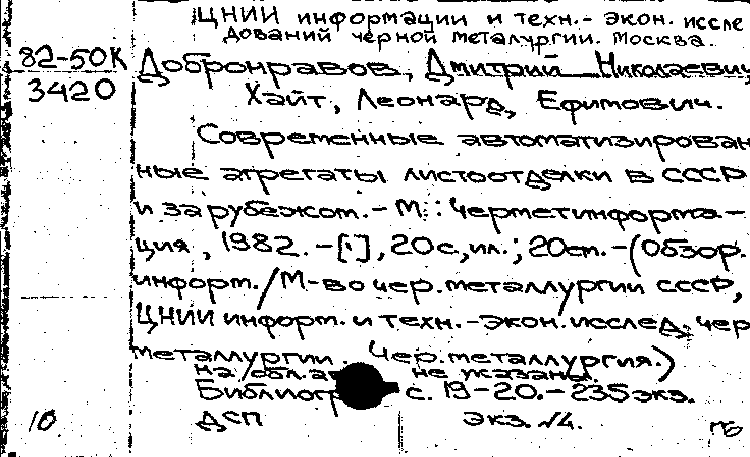 ЦНИИ информации и техн.- экон. иссле
дований черной металургии. Москва.
82-50К Добронравов, Дмитрий Николаевич
3420 Хайт, Леонард, Ефимович.
Современные автоматизирован
ные агрегаты листоотделки в СССР
и за рубежом. - М.: Черметинформа-
ция, 1982. - [1], 20с., ил.; 20см. - (Обзор.
информ./М-во чер. металлургии СССР,
ЦНИИ информ. и техн.-экон. исслед. чер
металлургии. Чер. металлургия.)
на обл. не указаны
Библиогр с. 19-20. - 235 экз.
10. ДСП экз. №4.